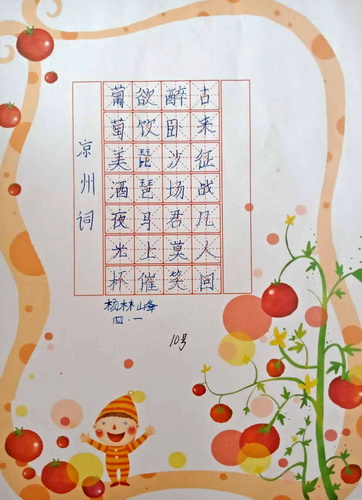 凉州词
葡萄美酒夜光杯
欲饮琵琶马上催
醉卧沙场君莫笑
古来征战几人回
杨林峰
四·一
10号